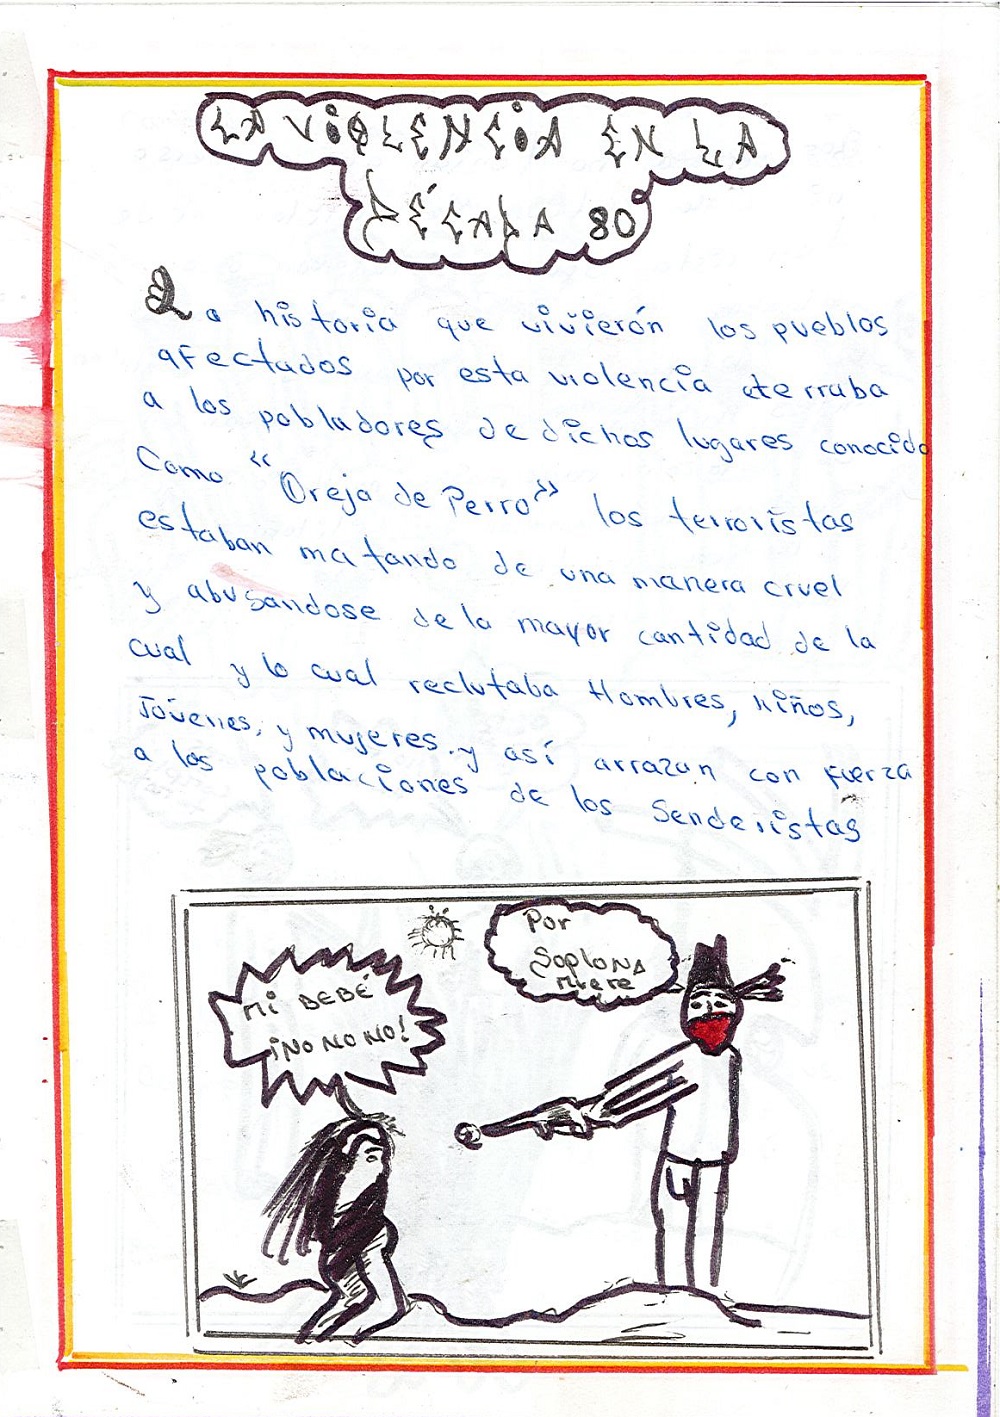 LA VIOLENCIA EN LA
DÉCADA 80
La historia que vivierón los pueblos
afectados por esta violencia aterraba
a los pobladores de dichos lugares conocido
Como "Oreja de Perro" los terroristas
estaban matando de una manera cruel
y abusandose de la mayor cantidad de la
cual y lo cual reclutaba Hombres, niños,
Jóvenes, y mujeres. y así arrazan con fuerza
a las poblaciones de los Senderistas
Por
Soplona
muere
Mi BEBÉ
¡NO NO NO!